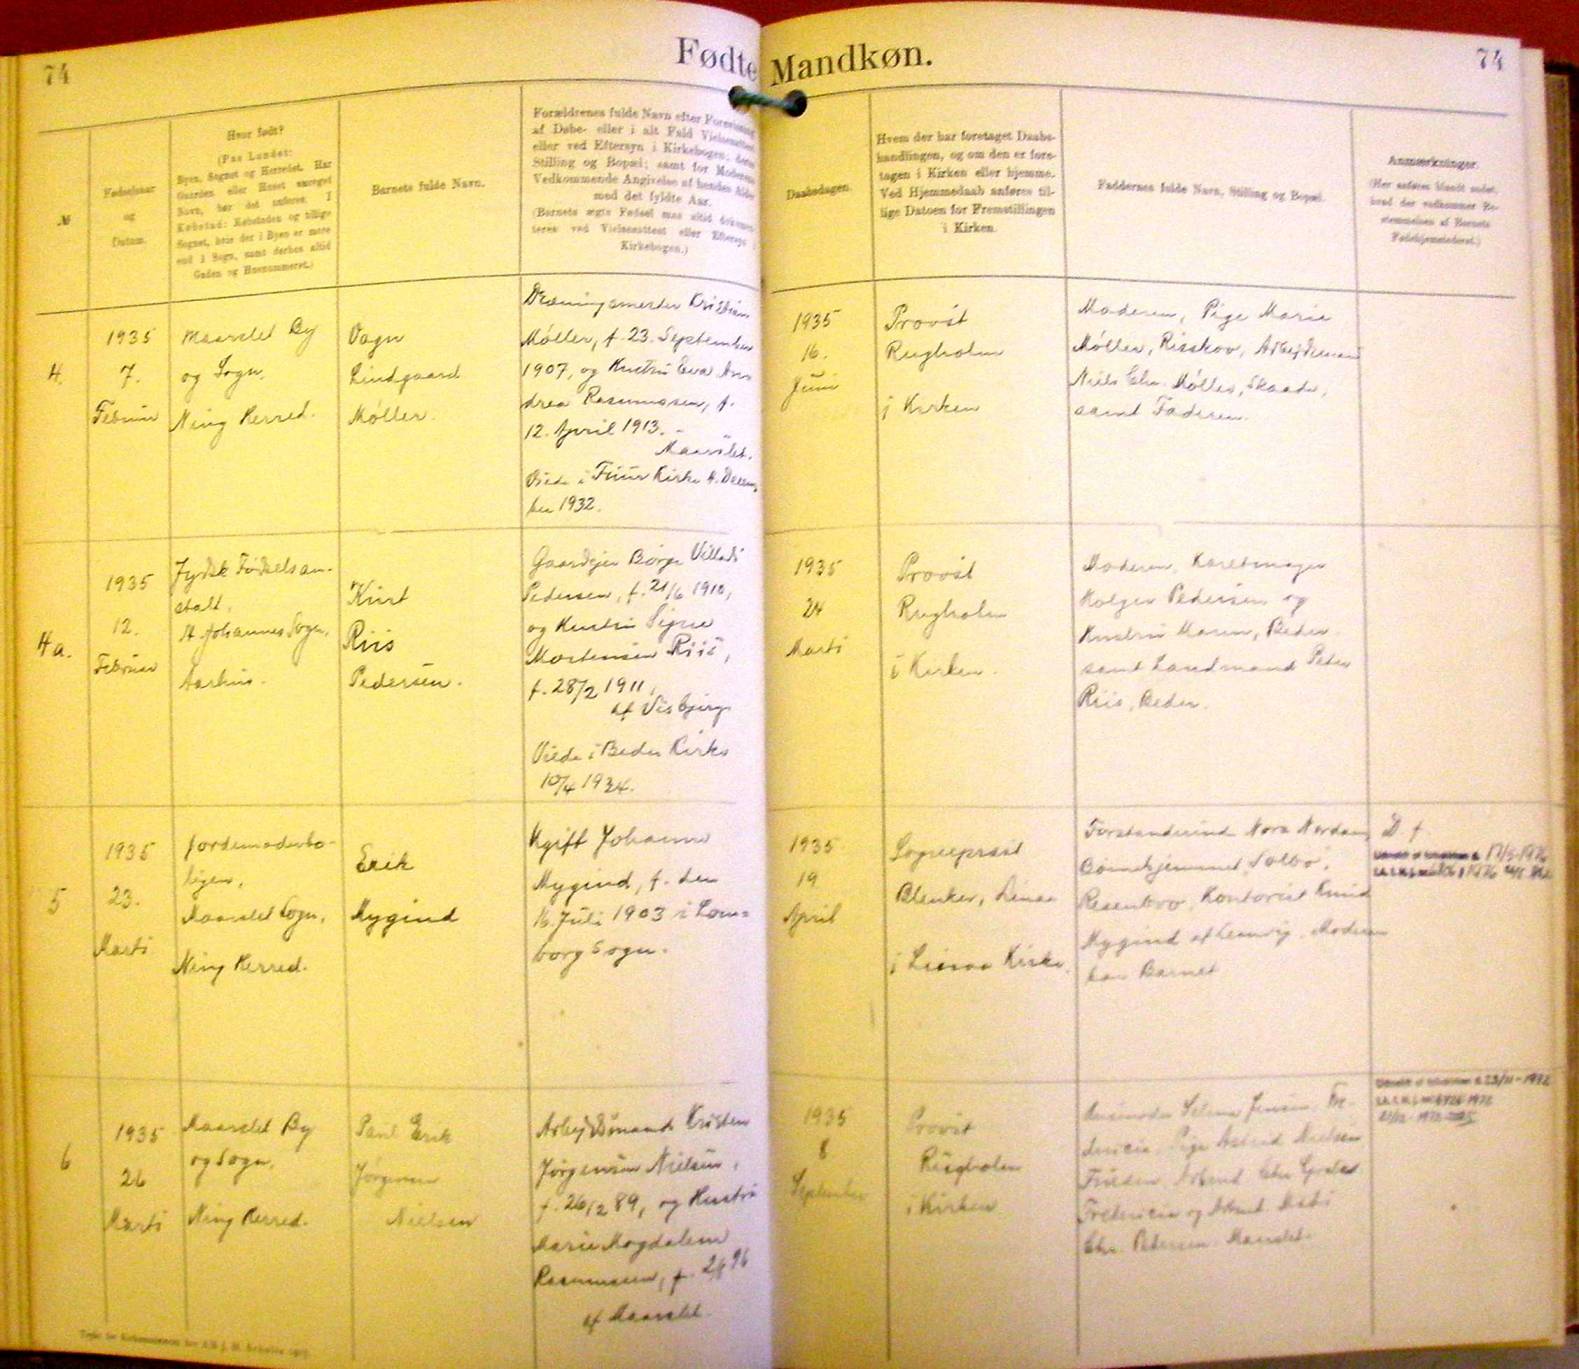 74
Fødte Mandkøn.
74
№
Fødselsaar
og
Datum.
Hvor født?
(Paa Landet:
Byen, Sognet og Herredet. Har
Gaarden eller Huset særeget
Navn, bør det anføres. I
Købstad: Købstaden og tillige
Sognet, hvis der i Byen er mere
end 1 Sogn, samt derhos altid
Gaden og Husnummeret.)
Barnets fulde Navn.
Forældrenes fulde Navn efter Forevisning
af Døbe- eller i alt Fald Vielsesattest
eller ved Eftersyn i Kirkebogen; deres
Stilling og Bopæl; samt for Moderens
Vedkommende Angivelse af hendes Alder
med det fyldte Aar.
(Barnets ægte Fødsel maa altid dokumen-
teres ved Vielsesattest eller Eftersyn i
Kirkebogen.)
Daabsdagen.
Hvem der har foretaget Daabs-
handlingen, og om den er fore-
tagen i Kirken eller hjemme.
Ved Hjemmedaab anføres til-
lige Datoen for Fremstillingen
i Kirken.
Faddernes fulde Navn, Stilling og Bopæl.
Anmærkninger.
(Her anføres blandt andet,
hvad der vedkommer Be-
stemmelsen af Barnets
Fødehjemstedsret.)
4.
1935
7.
Februar
Maarslet By
og Sogn,
Ning Herred.
Vagn
Lindgaard
Møller.
Kristian
Møller, f. 23. September
1907, og Hustru Eva An-
drea Rasmussen, f.
12. April 1913. -
Maarslet.
Viede i Fuur Kirke 4. Decem-
ber 1932.
1935
16.
Juni
Provst
Rugholm
i Kirken
Moderen, Pige Marie
Møller, Risskov, Arbejdsmand
Niels Chr. Møller, Skaade,
samt Faderen.
4a.
1935
12.
Februar
Jydsk Fødselsan-
stalt,
St. Johannes Sogn,
Aarhus.
Kurt
Riis
Pedersen.
Gaardejer Børge Villads
Pedersen, f. 21/6 1910,
og Hustru Signe
Mortensen Riis,
f. 28/2 1911,
af Visbjerg
Viede i Beder Kirke
10/4 1934.
1935
24
Marts
Provst
Rugholm
i Kirken.
Moderen, Karetmager
Holger Pedersen og
Hustru Maren, Beder
samt Landmand Peder
Riis, Beder.
5
1935
23.
Marts
Jordemoderbo-
ligen,
Maarslet Sogn,
Ning Herred.
Erik
Mygind
Ugift Johanne
Mygind, f. den
16. Juli 1903 i Lom-
borg Sogn.
1935
19
April
Sognepræst
Blenker,
i Kirke.
Forstanderinde Nora
Børnehjemmet "Solbo",
Rosenbro, Kontorist Knud
Mygind af Lemvig. Moderen
bar Barnet
D. f.
17/5-1976
6
1935
26
Marts
Maarslet By
og Sogn,
Ning Herred.
Paul Erik
Jørgensen
Nielsen
Arbejdsmand Kristen
Jørgensen Nielsen,
f. 26/2 89, og Hustru
Marie Magdalene
Rasmussen, f. 2/8 96
af Maarslet.
1935
8
September
Provst
Rugholm
i Kirken
Selma Jensen, Fre-
dericia, Pige Astrid Nielsen
Fredericia og Arbmd. Mads
Chr. Pedersen Maarslet.
23/11-1972